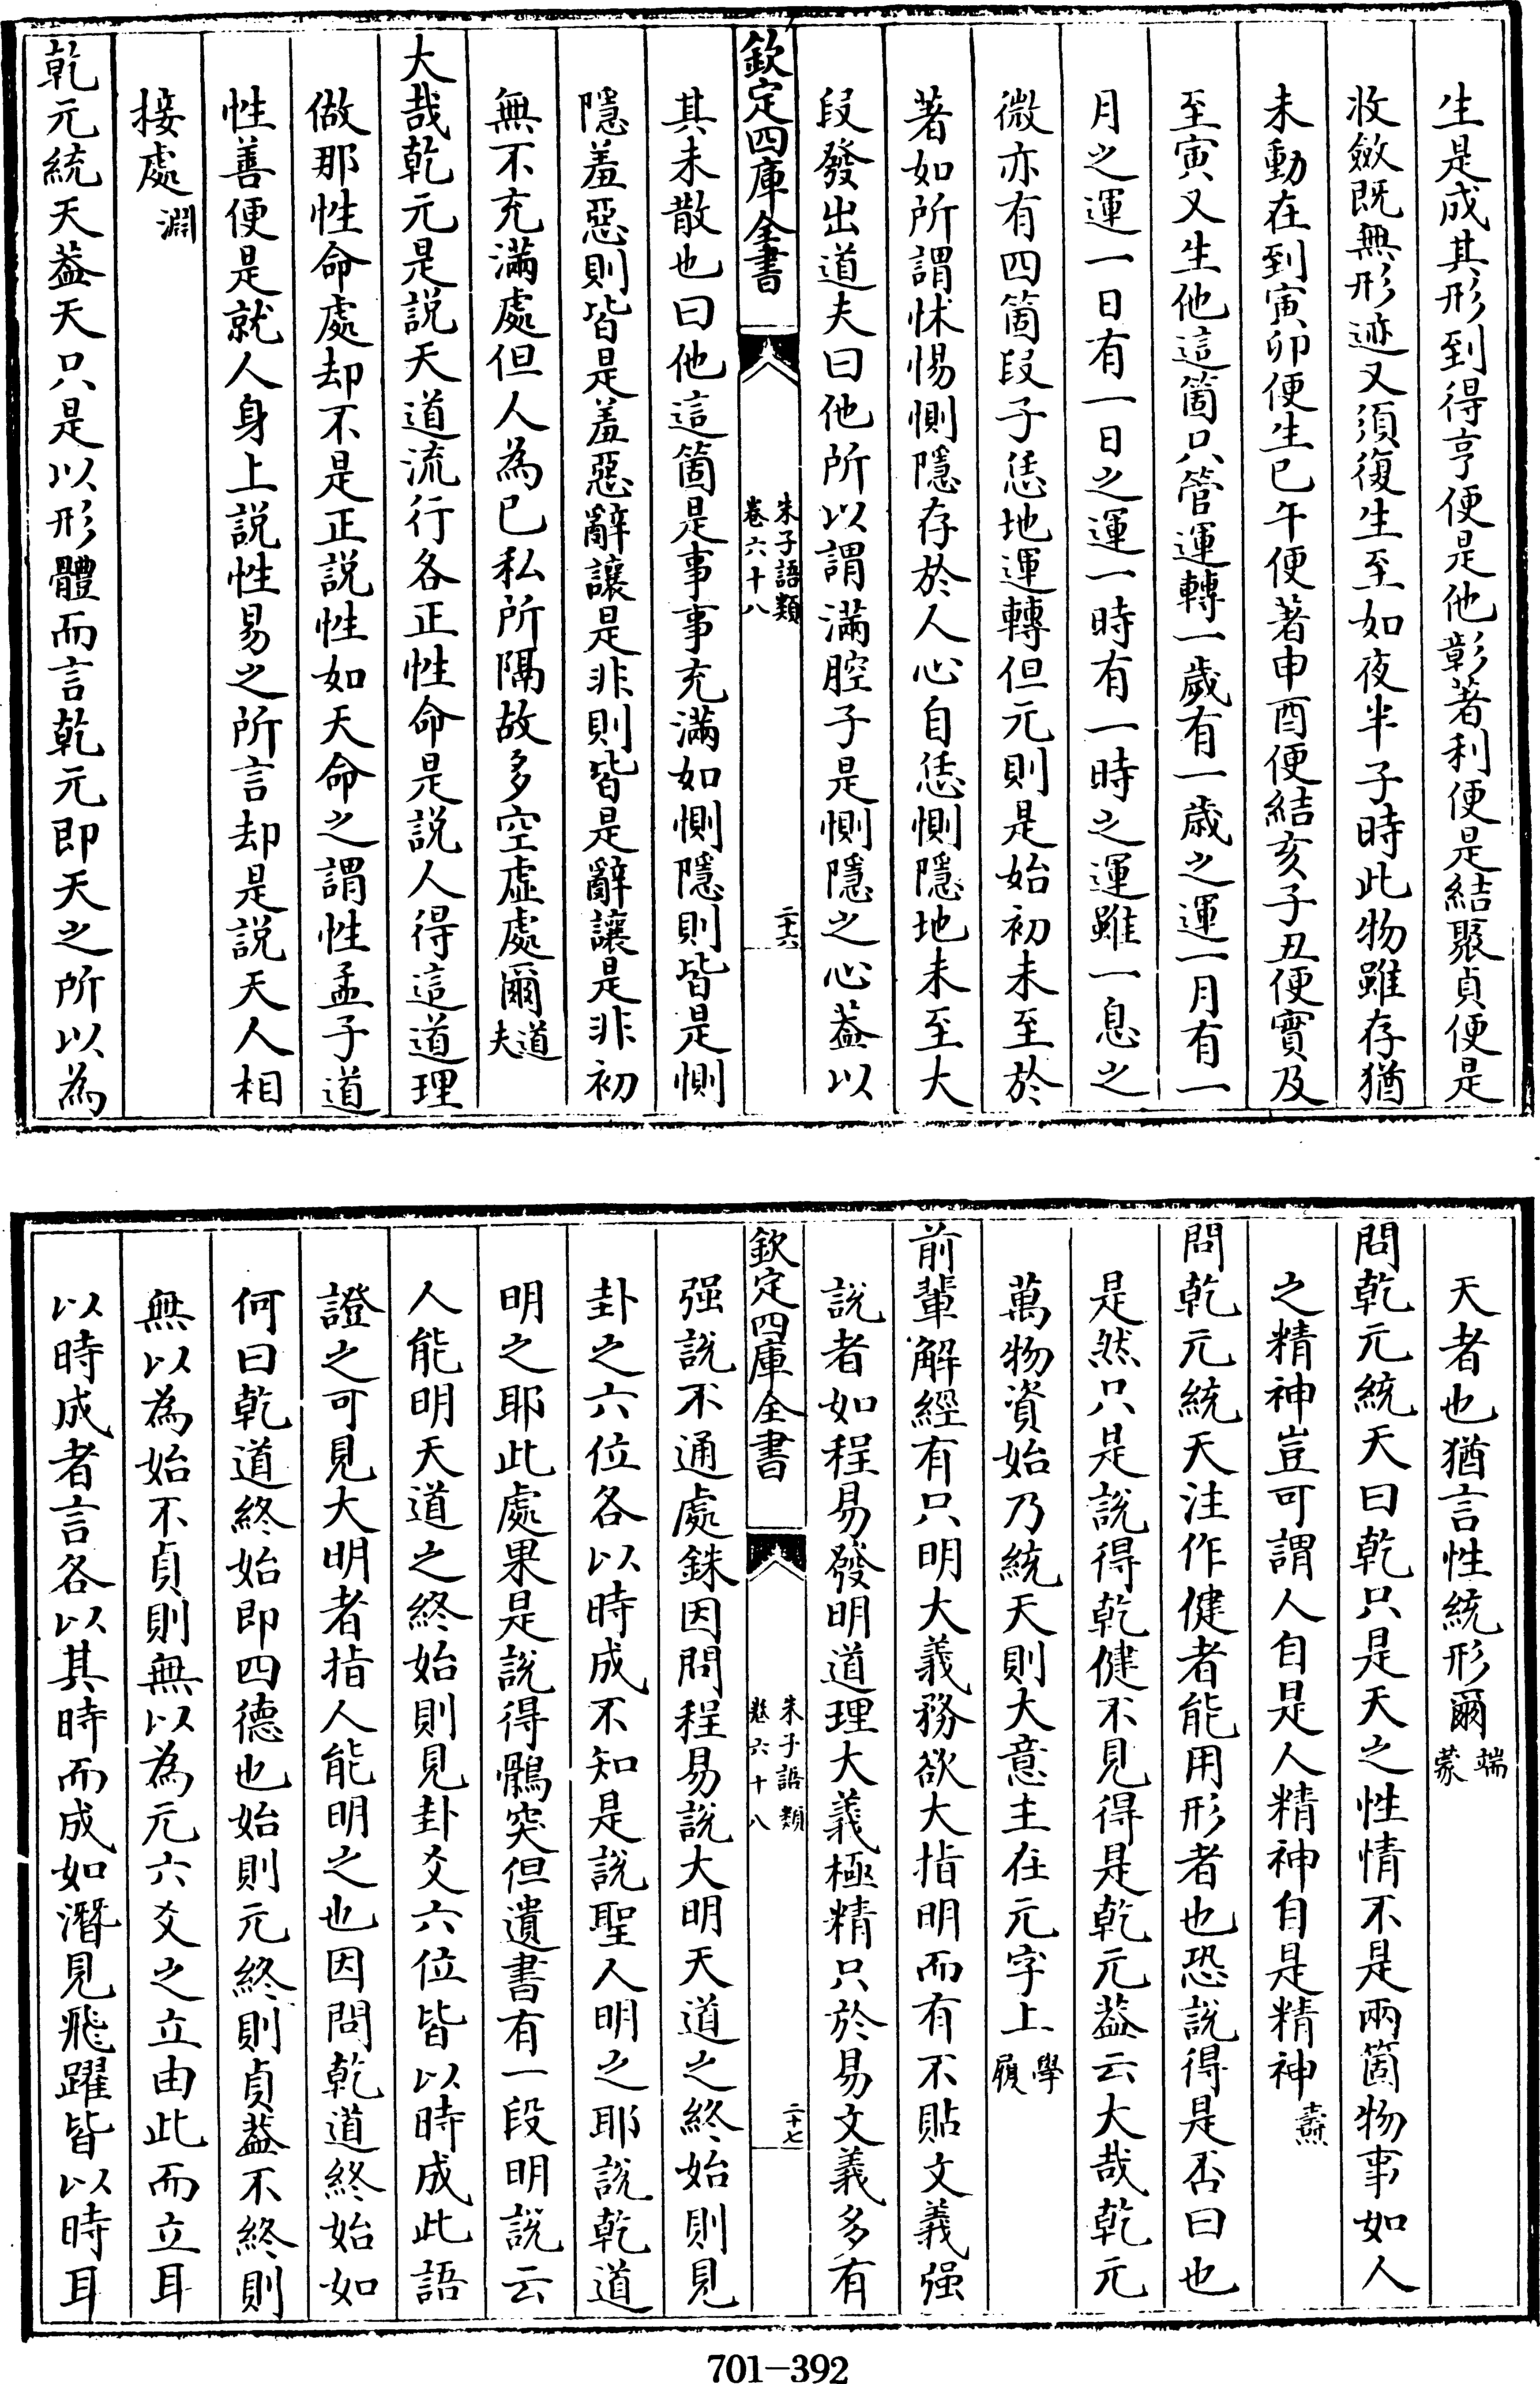 生是成其形到得亨便是他彰著利便是結聚貞便是
收斂既無形迹又須復生至如夜半子時此物雖存猶
未動在到寅卯便生巳午便著申酉便結亥子丑便實及
至寅又生他這箇只管運轉一歲有一歲之運一月有一
月之運一日有一日之運一時有一時之運雖一息之
微亦有四箇段子恁地運轉但元則是始初未至於
著如所謂怵惕惻隱存於人心自恁惻隱地未至大
段發出道夫曰他所以謂滿腔子是惻隱之心蓋以
欽定四庫全書
朱子語類
卷六十八
二十六
其未散也曰他這箇是事事充滿如惻隱則皆是惻
隱羞惡則皆是羞惡辭讓是非則皆是辭讓是非初
無不充滿處但人為已私所隔故多空虛處爾道夫
大哉乾元是說天道流行各正性命是說人得這道理
做那性命處却不是正說性如天命之謂性孟子道
性善便是就人身上說性易之所言却是說天人相
接處淵
乾元統天蓋天只是以形體而言乾元即天之所以為
天者也猶言性統形爾端蒙
問乾元統天曰乾只是天之性情不是兩箇物事如人
之精神豈可謂人自是人精神自是精神燾
問乾元統天注作健者能用形者也恐說得是否曰也
是然只是說得乾健不見得是乾元蓋云大哉乾元
萬物資始乃統天則大意主在元字上學履
前輩解經有只明大義務欲大指明而有不貼文義强
說者如程易發明道理大義極精只於易文義多有
欽定四庫全書
朱子語類
卷六十八
二十七
强說不通處銖因問程易說大明天道之終始則見
卦之六位各以時成不知是說聖人明之耶說乾道
明之耶此處果是說得鶻突但遺書有一段明說云
人能明天道之終始則見卦爻六位皆以時成此語
證之可見大明者指人能明之也因問乾道終始如
何曰乾道終始即四德也始則元終則貞蓋不終則
無以為始不貞則無以為元六爻之立由此而立耳
以時成者言各以其時而成如潛見飛躍皆以時耳
701-392